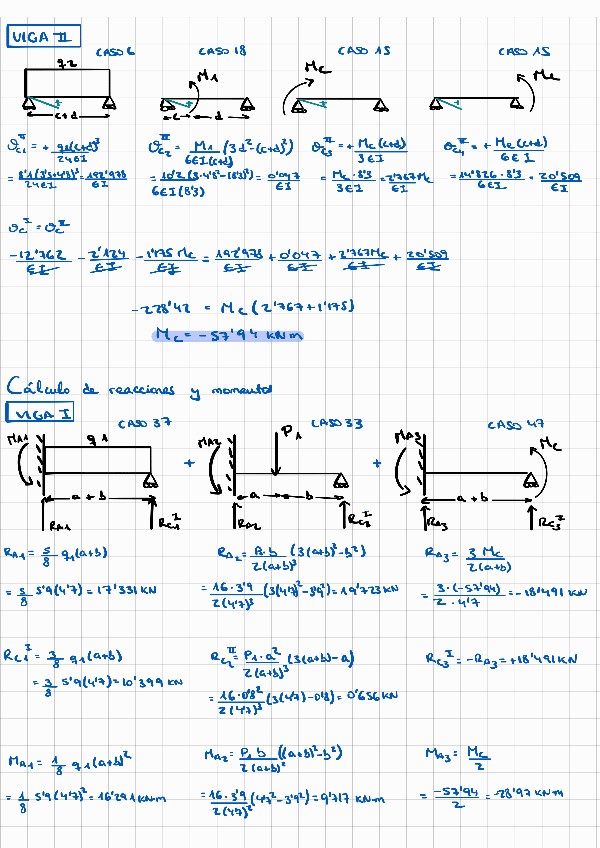 VIGA II
CASO 6 CASO 18 CASO 15 CASO 15
q2 M1 Mc Mc
c+d c d
θc1^II = + q2(c+d)³/24EI θc2^II = M1/6EI(c+d) (3d²-(c+d)²) θc3^II = + Mc(c+d)/3EI θc4^II = + Me(c+d)/6EI
= 8'1(3'5+4'8)³/24EI = 192'978/EI = 10'2(3·4'8²-(8'3)²)/6EI(8'3) = 0'047/EI = Mc·8'3/3EI = 2'767Mc/EI = 14'826·8'3/6EI = 20'509/EI
θc^I = θc^II
-12'762/EI - 2'124/EI - 1'175Mc/EI = 192'978/EI + 0'047/EI + 2'767Mc/EI + 20'509/EI
-228'42 = Mc(2'767+1'175)
Mc = -57'94 kN·m
Cálculo de reacciones y momentos
VIGA I
CASO 37 CASO 33 CASO 47
MA1 q1 + MA2 P1 + MA3 Mc
a + b a b a + b
RA1 Rc1^I RA2 Rc2^I RA3 Rc3^I
RA1 = 5/8 q1(a+b) RA2 = P1·b/2(a+b)³ (3(a+b)²-b²) RA3 = 3Mc/2(a+b)
= 5/8 5'9(4'7) = 17'331 kN = 16·3'9/2(4'7)³ (3(4'7)²-3'9²) = 19'723 kN = 3·(-57'94)/2·4'7 = -18'491 kN
Rc1^I = 3/8 q1(a+b) Rc2^II = P1·a²/2(a+b)³ (3(a+b)-a) Rc3^I = -RA3 = +18'491 kN
= 3/8 5'9(4'7) = 10'399 kN = 16·0'8²/2(4'7)³ (3(4'7)-0'8) = 0'656 kN
MA1 = 1/8 q1(a+b)² MA2 = P1 b/2(a+b)² ((a+b)²-b²) MA3 = Mc/2
= 1/8 5'9(4'7)² = 16'291 kN·m = 16·3'9/2(4'7)² (4'7²-3'9²) = 9'717 kN·m = -57'94/2 = -28'97 kN·m